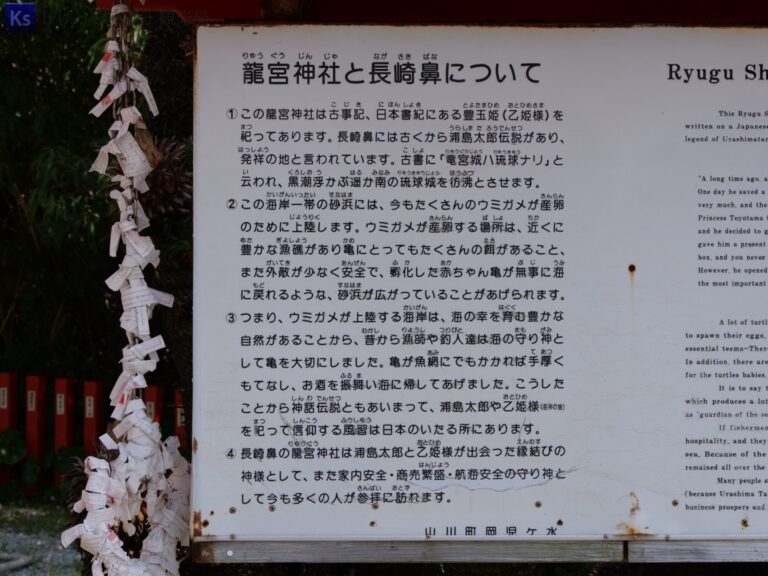 Ks
龍宮神社と長崎鼻について
①この龍宮神社は古事記、日本書紀にある豊玉姫(乙姫様)を
祀ってあります。長崎鼻には古くから浦島太郎伝説があり、
発祥の地と言われています。古書に「竜宮城ハ琉球ナリ」と
云われ、黒潮浮かぶ遥か南の琉球城を彷彿とさせます。
②この海岸一帯の砂浜には、今もたくさんのウミガメが産卵
のために上陸します。ウミガメが産卵する場所は、近くに
豊かな漁礁があり亀にとってもたくさんの餌があること、
また外敵が少なく安全で、孵化した赤ちゃん亀が無事に海
に戻れるような、砂浜が広がっていることがあげられます。
③つまり、ウミガメが上陸する海岸は、海の幸を育む豊かな
自然があることから、昔から漁師や釣人達は海の守り神と
して亀を大切にしました。亀が魚網にでもかかれば手厚く
もてなし、お酒を振舞い海に帰してあげました。こうした
ことから神話伝説ともあいまって、浦島太郎や乙姫様
を祀って信仰する風習は日本のいたる所にあります。
④長崎鼻の龍宮神社は浦島太郎と乙姫様が出会った縁結びの
神様として、また家内安全・商売繁盛・航海安全の守り神と
して今も多くの人が参拝に訪れます。
山川町岡児ヶ水
Ryugu Sh
This Ryugu S
written on a Japanese
legend of Urashimataro
"A long time ago, a
One day he saved a
very much, and the
Princess Toyotama l
and he decided to g
gave him a present
box, and you never
However, he opened
the most important
A lot of turtle
to spawn their eggs,
essential teems-There
In addition, there are
for the turtles babies,
It is to say t
which produces a lot
as "guardian of the se
If fishermen
hospitality, and they
sea. Because of the
remained all over the
Many people s
(because Urashima Ta
business prospers and